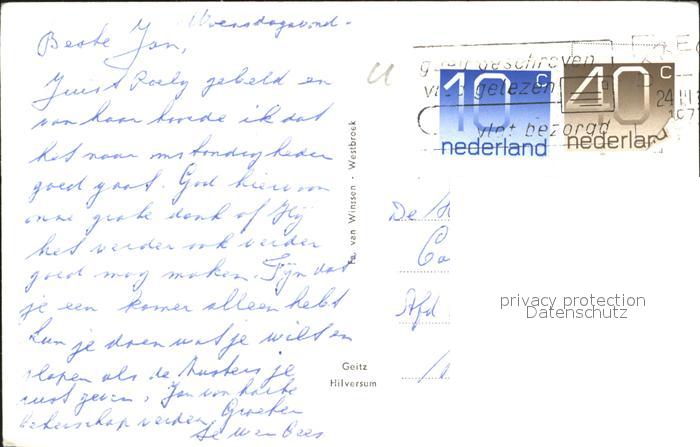 Woensdagavond.
Beste Jan,
Juist Roely gebeld en
van haar hoorde ik dat
het naar omstandigheden
goed gaat. God hiervoor
onze grote dank of Hij
het verder ook verder
goed mag maken. Fijn dat
je een kamer alleen hebt
kun je doen wat je wilt en
slapen als de zusters je
rust geven. Jan van harte
beterschap verder. Groeten
Fa. van Winssen - Westbroek
Geitz
Hilversum
goed geschreven
vlot gelezen
vlot bezorgd
24 III
197
10 c
nederland
40 c
nederland
De
Afd
privacy protection
Datenschutz